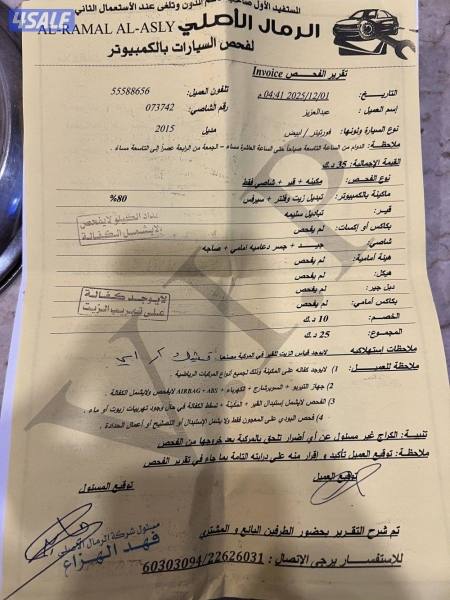 4SALE
المستفيد الأول صاحب الاسم المدون وتلغى عند الأستعمال الثاني
الرمال الأصلي
AL-RAMAL AL-ASLY
لفحص السيارات بالكمبيوتر
تقرير الفحص Invoice
التاريخ: 2025/12/01 04:41 م
تلفون العميل: 55588656
إسم العميل: عبدالعزيز
رقم الشاصي: 073742
نوع السيارة ولونها: فورتينر / ابيض
مديل 2015
ملاحظة: الدوام من الساعة التاسعة صباحاً حتى الساعة العاشرة مساء - الجمعة من الرابعة عصراً إلى التاسعة مساءً
القيمة الإجمالية: 35 د.ك
نوع الفحص: مكينه + قير + شاصي فقط
ماكينة بالكمبيوتر: تبديل زيت وفلتر + سيرفس 80%
قير: تباديل سليمه
عداد الكيلو لايفحص
ولايشمل الكفالة
بكاكس أو إكسات: لم يفحص
شاصي: جيد + جسر دعاميه امامي + صاجه
هيئة أمامية: لم يفحص
هيكل: لم يفحص
دبل جير: لم يفحص
لايوجد كفالة
على تهريب الزيت
بكاكس أمامي: لم يفحص
الخصم: 10 د.ك
المجموع: 25 د.ك
ملاحظات إستهلاكيه لايوجد قياس الزيت للقير في المركبة مصنعيا
ملاحظة للعميل: 1) لايوجد كفاله على المكينة وذلك لجميع انواع المركبات الرياضية.
2) جهاز التيربو + السوبرشارج + الكهرباء + AIRBAG - ABS لايفحص ولايشمل الكفالة
3) الفحص لايشمل إستبدال القير + المكينة + تسقط الكفالة في حال وجود تهريبات زيوت أو ماء.
4) فحص البودي على المعجون فقط ولا يشمل الإستبدال أو التصليح أو أعمال الحدادة.
تنبية: الكراج غير مسئول عن أي أضرار تلحق بالمركبة بعد خروجها من الفحص
ملاحظة: توقيع العميل تأكيد و إقرار منه على درايته التامة بما جاء في تقرير الفحص
توقيع العميل
توقيع المسئول
مسئول شركة الرمال الأصلي
فهد الهزاع
تم شرح التقرير بحضور الطرفين البائع و المشتري
للإستفسار يرجى الإتصال : 22626031 / 60303094
VIP